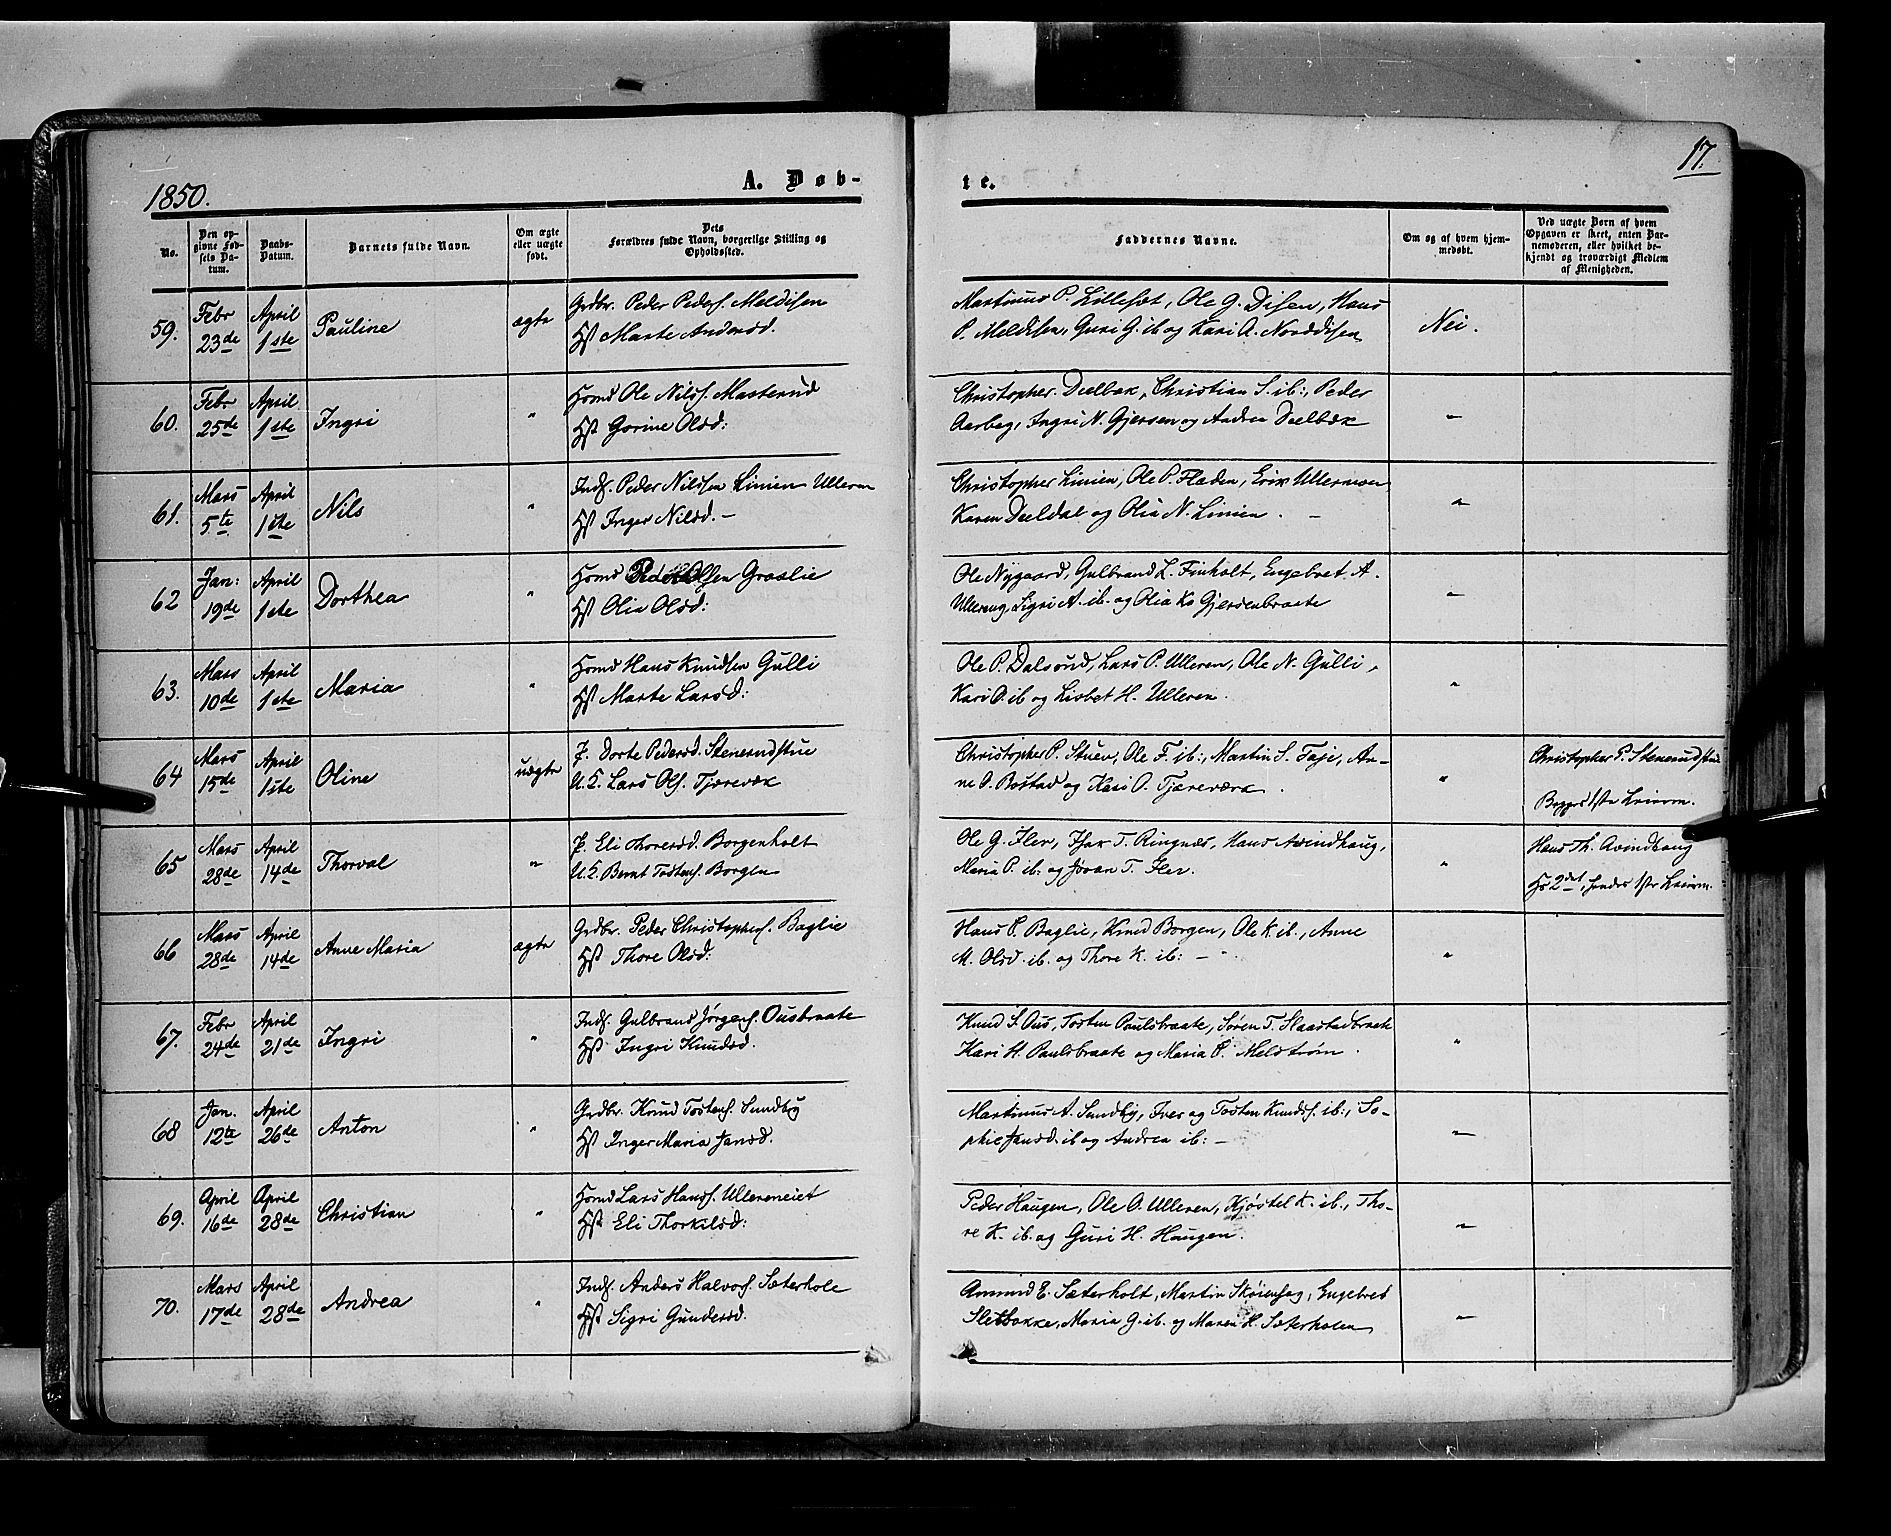 1850.
A. Døb-
te.
17.
No.
Den op-
givne Fød-
sels Da-
tum.
Daabs-
Datum.
Barnets fulde Navn.
Om ægte
eller uægte
født.
Dets
Forældres fulde Navn, borgerlige Stilling og
Opholdssted.
Faddernes Navne.
Om og af hvem hjem-
medøbt.
Ved uægte Børn af hvem
Opgaven er skeet, enten Bar-
nemoderen, eller hvilket be-
kjendt og troværdigt Medlem
af Menigheden.
59.
Febr
23de
April
1ste
Pauline
ægte
Grdbr. Peder Peders. Meldisen
Hst Marte Andersd.
Martinus P. Lillesæt, Ole G. Disen, Hans
P. Meldisen, Guri G. ib og Kari A. Norddisen
Nei.
60.
Febr
25de
April
1ste
Ingri
"
Hsmd Ole Nils. Masterud
Hst Gorine Olsd:
Christopher Dælbæk, Christian S. ib:, Peder
Aasbag, Ingri N. Gjersøen og Andrea Dælbæk
"
61.
Mars
5te
April
1ste
Nils
"
Inds. Peder Nilsen Linien Ulleren
Hst Inger Nilsd. -
Christopher Linien, Ole P. Flæden, Erik Ullernsen
Karen Dældal og Olia N. Linien. -
"
62
Jan:
19de
April
1ste
Dorthea
"
Hsmd Peder Olsen Graslie
Hst Olia Olsd:
Ole Nygaard, Gulbrand L. Finholt, Engebret A.
Ullereng, Sigri A. ib. og Olia K. Gjersøenbraate
"
63.
Mars
10de
April
1ste
Maria
"
Hsmd Hans Knudsen Gulli
Hst Marte Larsd:
Ole P. Dalsrud, Lars P. Ulleren, Ole N. Gulli,
Kari O. ib og Lisbet H. Ulleren.
"
64
Mars
15de
April
1ste
Oline
uægte
P. Dorte Pedersd. Stenerudstue
U. K. Lars Ols. Tjærevæk
Christopher P. Stuen, Ole F. ib:, Martin S. Faje, An-
ne O. Bøstad og Kari O. Tjærevæk.
"
Christopher P. Stenerudstue
Begges 1ste Leierm.
65
Mars
28de
April
14de
Thorval
"
P. Eli Thoresd. Borgenholt
U. K. Bernt Tostens. Borgen
Ole G. Iler, Isak T. Ringnæs, Hans Avindhaug,
Maria P. ib: og Jøran T. Iler.
"
Hans Th. Avindhaug
Hs 2det, hendes 1ste Leierm.
66
Mars
28de
April
14de
Anne Maria
ægte
Grdbr. Peder Christophers. Baglie
Hst Thore Olsd:
Hans C. Baglie, Knud Borgen, Ole K. ib., Anne
M. Olsd. ib. og Thore K. ib: -
"
67.
Febr
24de
April
21de
Ingri
"
Inds. Gulbrand Jørgens. Ousbraate
Hst Ingri Knudsd.
Knud S. Ous, Tosten Paulsbraate, Søren T. Slaastadbraate
Kari H. Paulsbraate og Maria P. Melstrøm.
"
68
Jan.
12te
April
26de
Anton
"
Grdbr. Knud Tostens. Sundby
Hst Inger Maria Jansd.
Martinus A. Sundby, Iver og Tosten Knuds. ib:, So-
phie Jansd. ib og Andrea ib: -
"
69.
April
16de
April
28de
Christian
"
Hsmd Lars Hans. Ullereneiet
Hst Eli Thorkilsd:
Peder Haugen, Ole O. Ulleren, Kjøstel K. ib., Tho-
re K. ib. og Guri H. Haugen.
"
70.
Mars
17de
April
28de
Andrea
"
Inds. Anders Halvors. Sæterhole
Hst Sigri Gundersd.
Amund E. Sæterholt, Martin Skørshag, Engebred
Sletbakke, Maria G. ib. og Maren H. Sæterholen
"